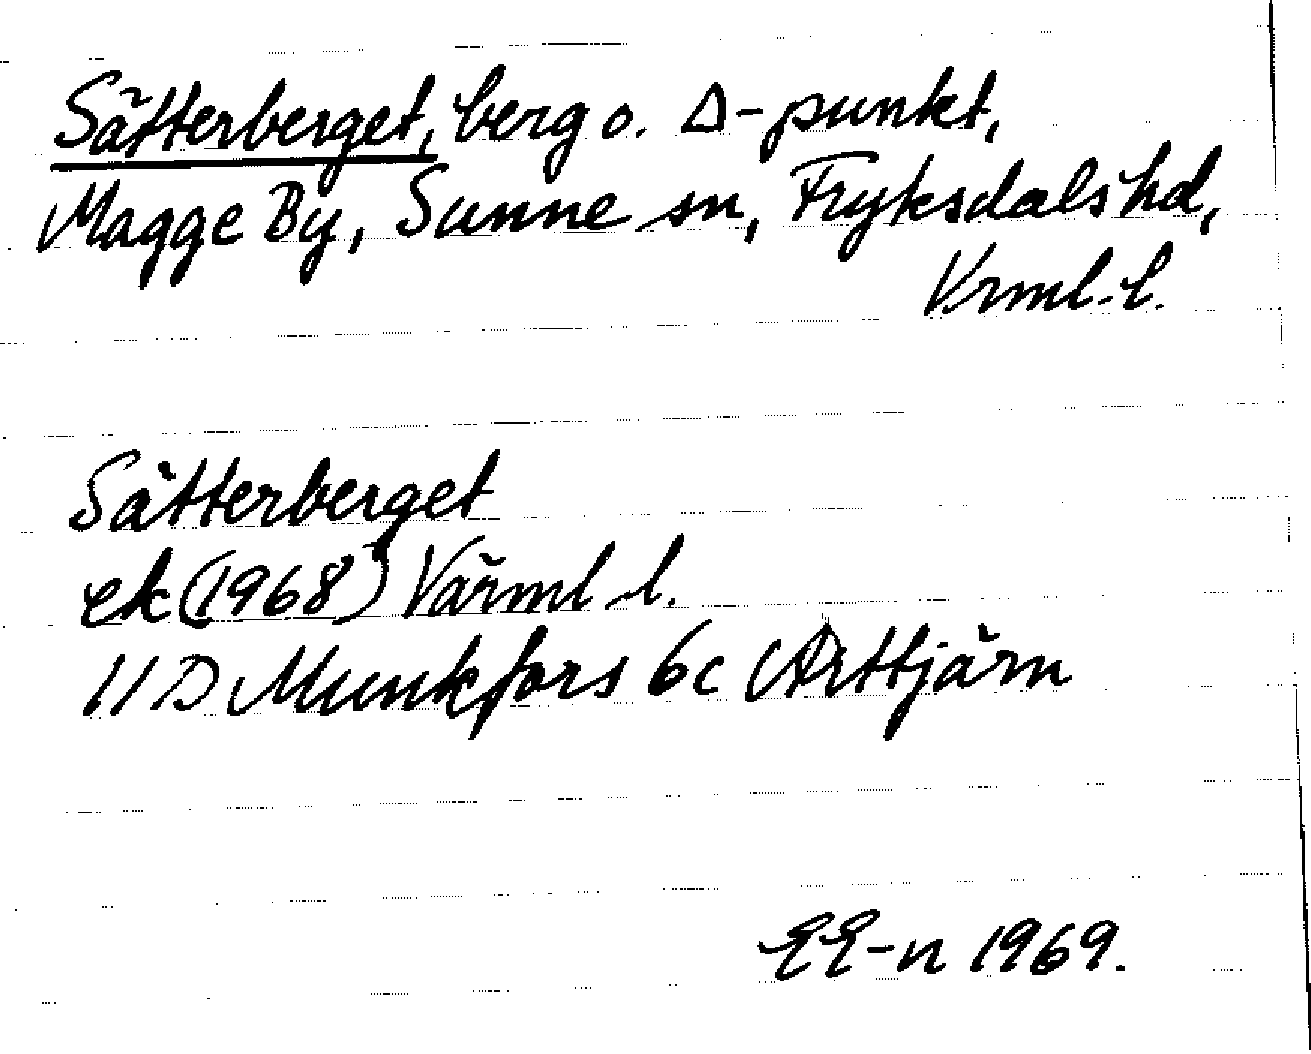 Sätterberget, berg o. Δ-punkt,
Magge By, Sunne sn, Fryksdals hd,
Vrml. l.
Sätterberget
ek (1968) Värml l.
11 D Munkfors 6c Arttjärn
EE-n 1969.